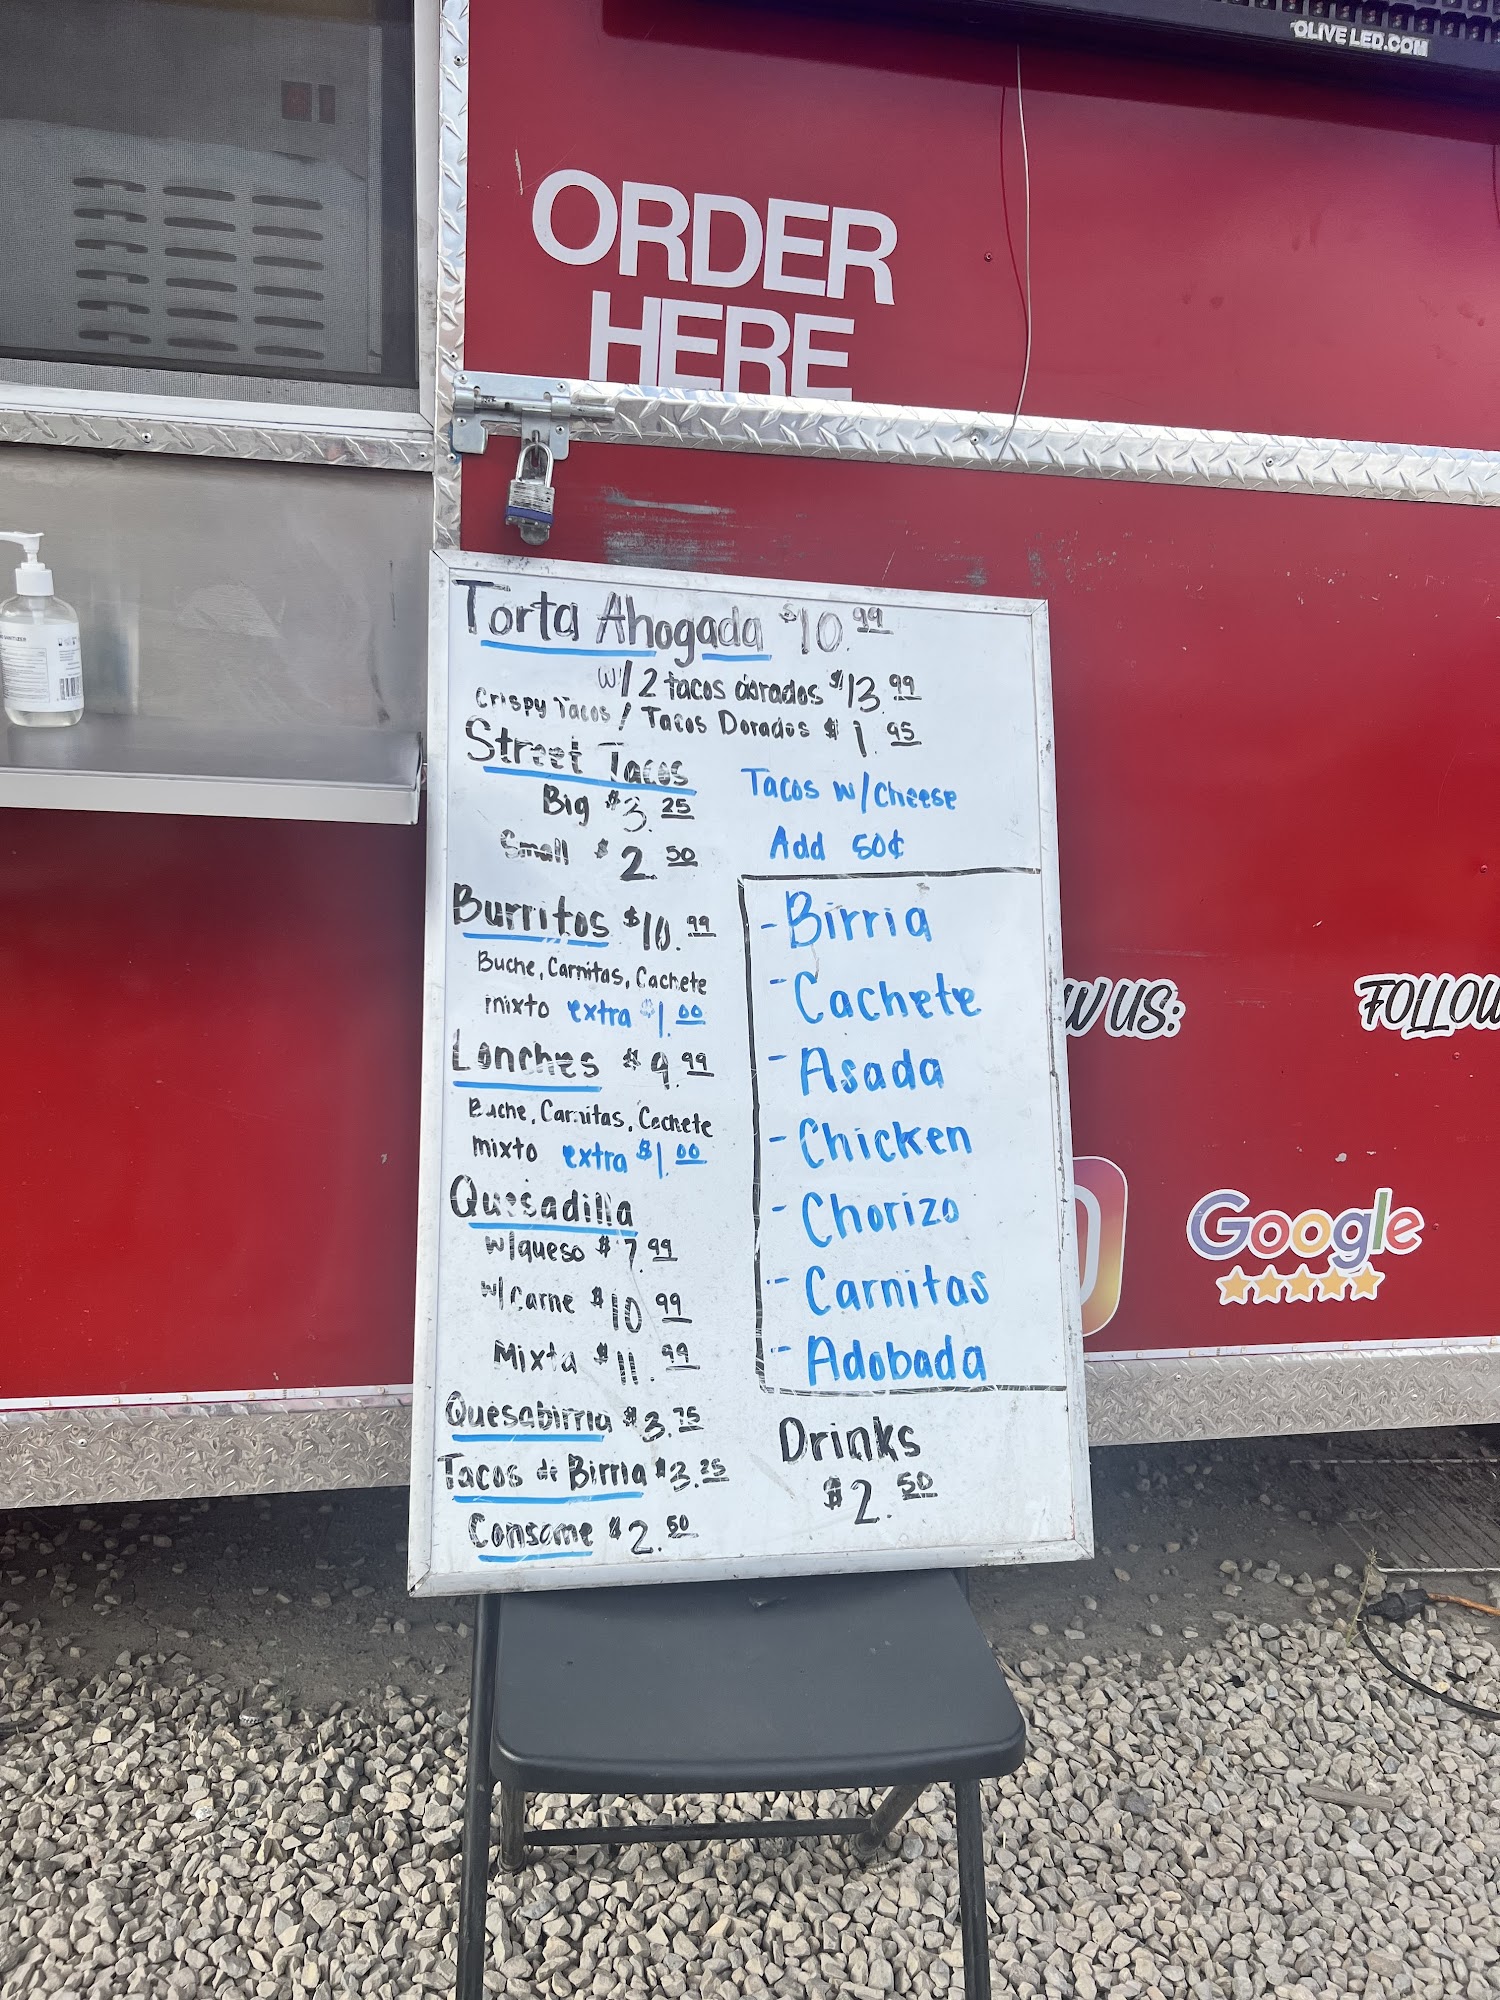 OLIVE LED.COM
ORDER
HERE
Torta Ahogada $10.99
w/ 2 tacos dorados $13.99
Crispy Tacos / Tacos Dorados $1.95
Street Tacos
Big $3.25
Small $2.50
Tacos w/ Cheese
Add 50¢
Burritos $10.99
Buche, Carnitas, Cachete
mixto extra $1.00
Lonches $9.99
Buche, Carnitas, Cachete
mixto extra $1.00
Quesadilla
w/queso $7.99
w/Carne $10.99
Mixta $11.99
Quesabirria $3.75
Tacos de Birria $3.25
Consome $2.50
- Birria
- Cachete
- Asada
- Chicken
- Chorizo
- Carnitas
- Adobada
Drinks
$2.50
W US:
FOLLOW
Google